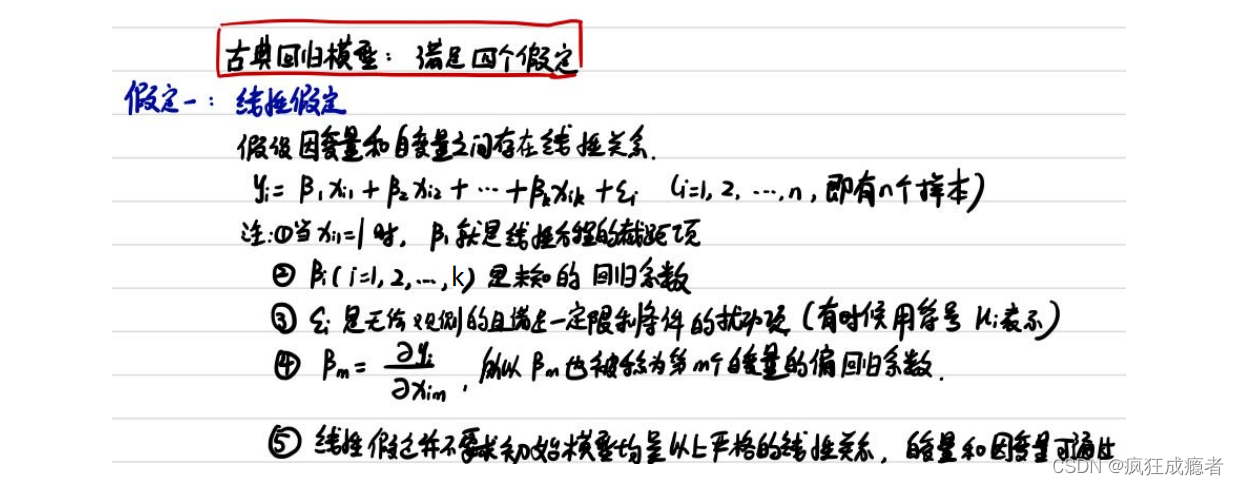 古典回归模型：满足四个假定
假定一：线性假定
假设因变量和自变量之间存在线性关系.
yi = β1xi1 + β2xi2 + ⋯ + βkxik + εi （i=1, 2, ⋯, n, 即有n个样本）
注：①当xi1=1时，β1就是线性方程的截距项
② βi（i=1, 2, ⋯, k）是未知的回归系数
③ εi是无法观测的且满足一定限制条件的扰动项（有时候用符号μi表示）
④ βm = ∂yi/∂xim，所以βm也被称为第m个自变量的偏回归系数.
⑤ 线性假定并不要求初始模型均是以上严格的线性关系，自变量和因变量可通过
CSDN @疯狂成瘾者